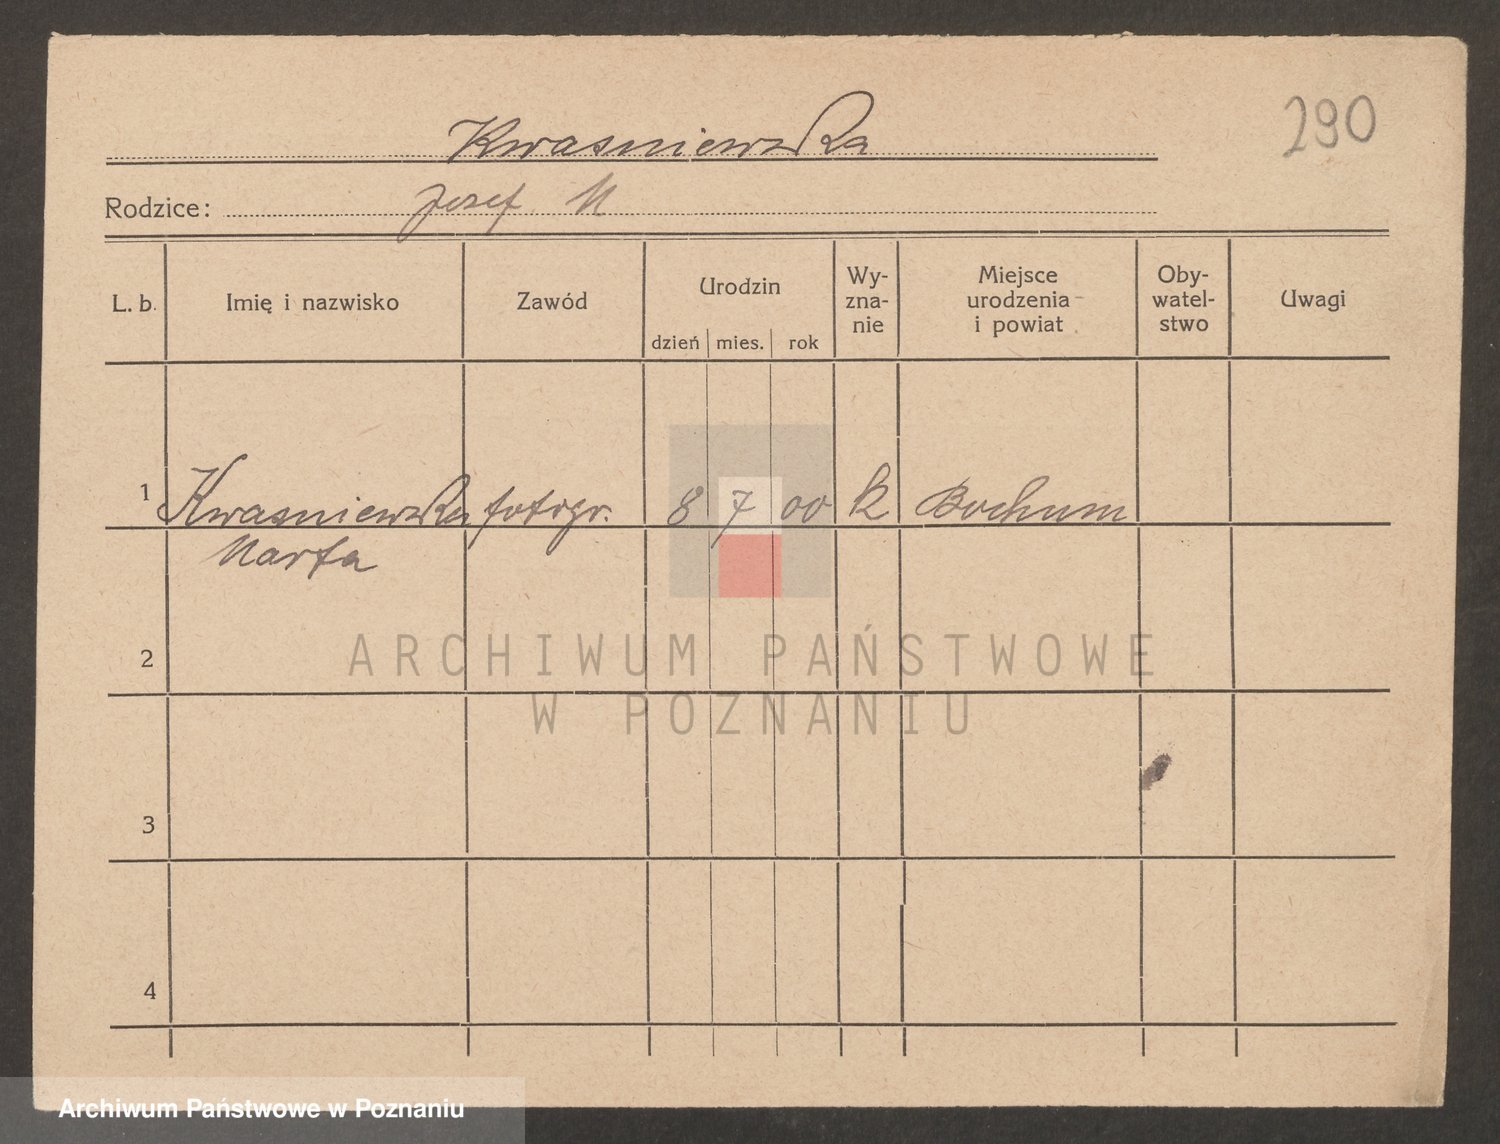 290
Kwasniewska
Rodzice: Josef M
L. b. Imię i nazwisko Zawód Urodzin Wy-zna-nie Miejsce urodzenia i powiat Oby-watel-stwo Uwagi
dzień mies. rok
1 Kwasniewska fotogr. 8 7 00 k Bochum
Marta
2
3
4
ARCHIWUM PAŃSTWOWE
W POZNANIU
Archiwum Państwowe w Poznaniu